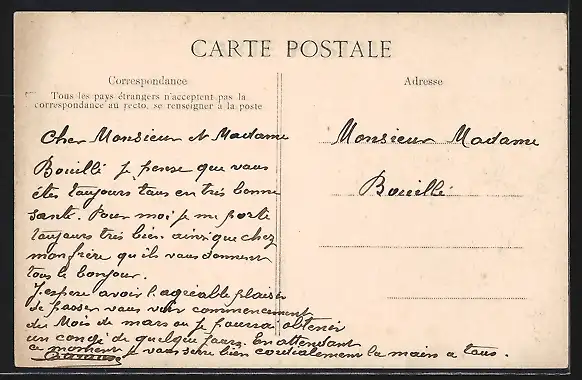 CARTE POSTALE
Correspondance
Tous les pays étrangers n'acceptent pas la
correspondance au recto, se renseigner à la poste
Adresse
Cher Monsieur et Madame
Bouillé je pense que vous
étes toujours tous en très bonne
santé. Pour moi je me porte
toujours très bien. ainsi que chez
mon frère qu'ils vous donnent
tous le bonjour.
J'espere avoir l'agréable plaisir
de passer vous voir commencement
du Mois de mars ou je pourrai obtenir
un congé de quelque jours. En attendant
ce moment je vous serre bien cordialement la main a tous.
Monsieur Madame
Bouillé